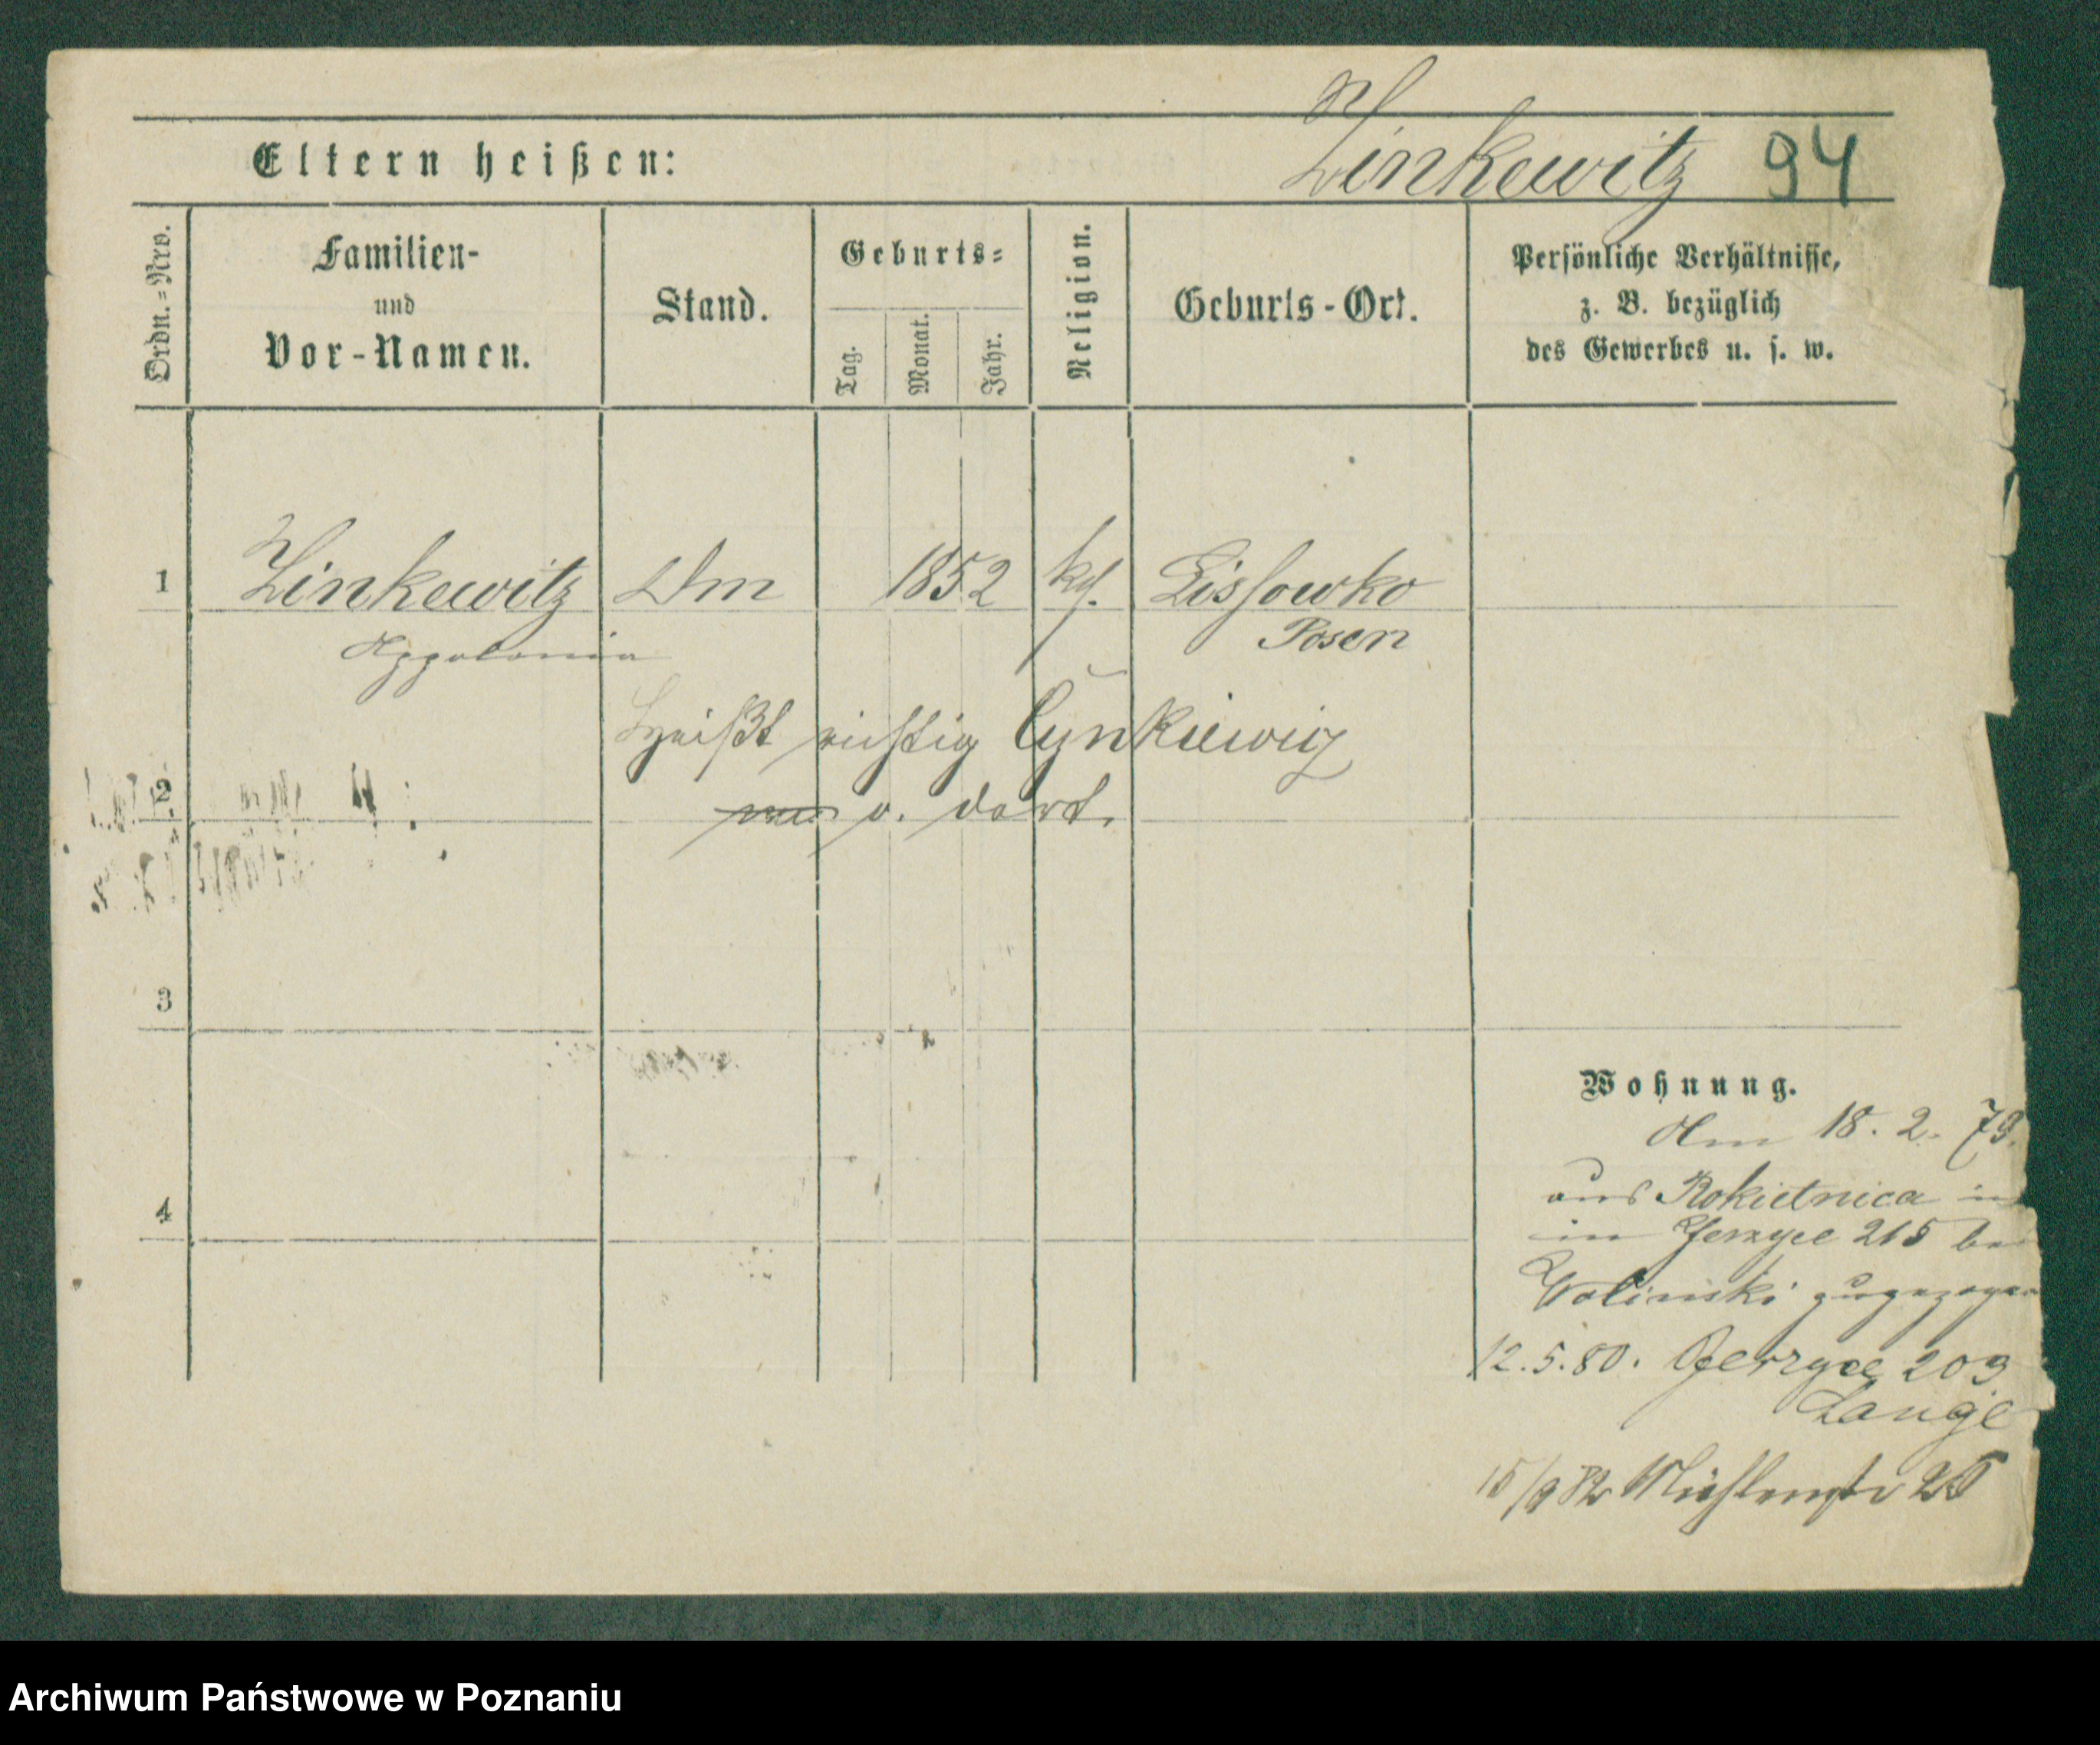 Zinkewitz 94
Eltern heißen:
Ordn.=Nro.
Familien-
und
Vor-Namen.
Stand.
Geburts=
Tag.
Monat.
Jahr.
Religion.
Geburts-Ort.
Persönliche Verhältnisse,
z. B. bezüglich
des Gewerbes u. s. w.
1 Zinkewitz Dm 1852 kth. Lissowko
Appolonia Posen
Heißt richtig Cynkiewicz
v. dort.
2
3
Wohnung.
Am 18. 2. 79.
aus Rokietnica
in Jerzyce 215 bei
Wolinski zugezogen
4
12.5.80. Jerzyce 209
Lange
15/9 82 Mühlenstr 25
Archiwum Państwowe w Poznaniu